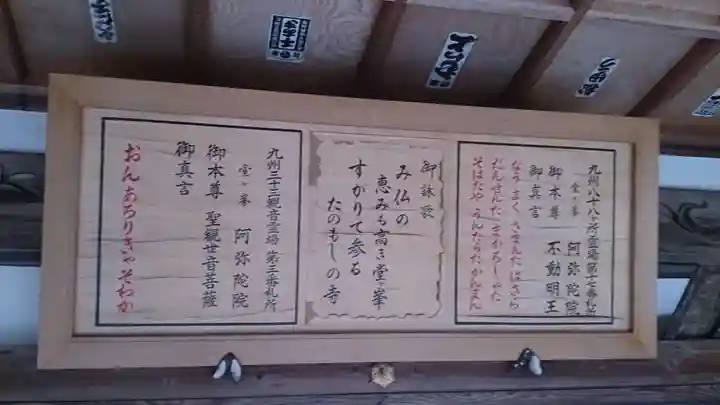 九州八十八ヶ所霊場第十七番札所
堂ヶ峯 阿弥陀院
御本尊 不動明王
御真言
なうまくさまんだばさら
だんせんだまかろしゃだ
そはたやうんたらたかんまん
御詠歌
み仏の
恵みも高き堂ヶ峯
すがりて参る
たのもしの寺
九州三十三観音霊場第三番札所
堂ヶ峯 阿弥陀院
御本尊 聖観世音菩薩
御真言
おんあろりきゃそわか